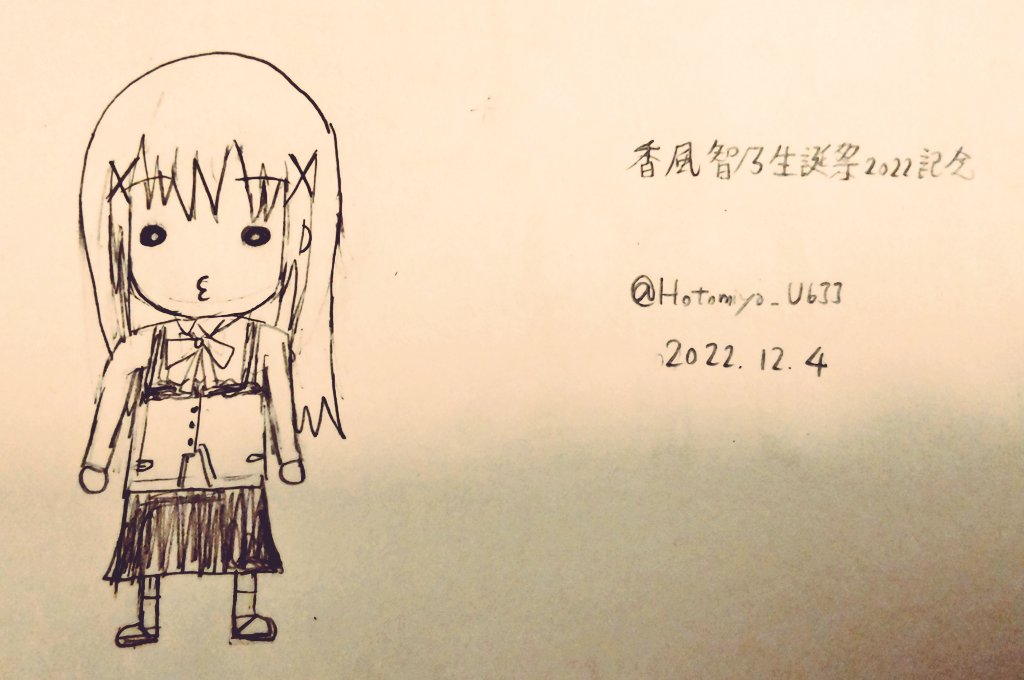 香風智乃生誕祭2022記念
@Hotomiyo_U633
2022.12.4